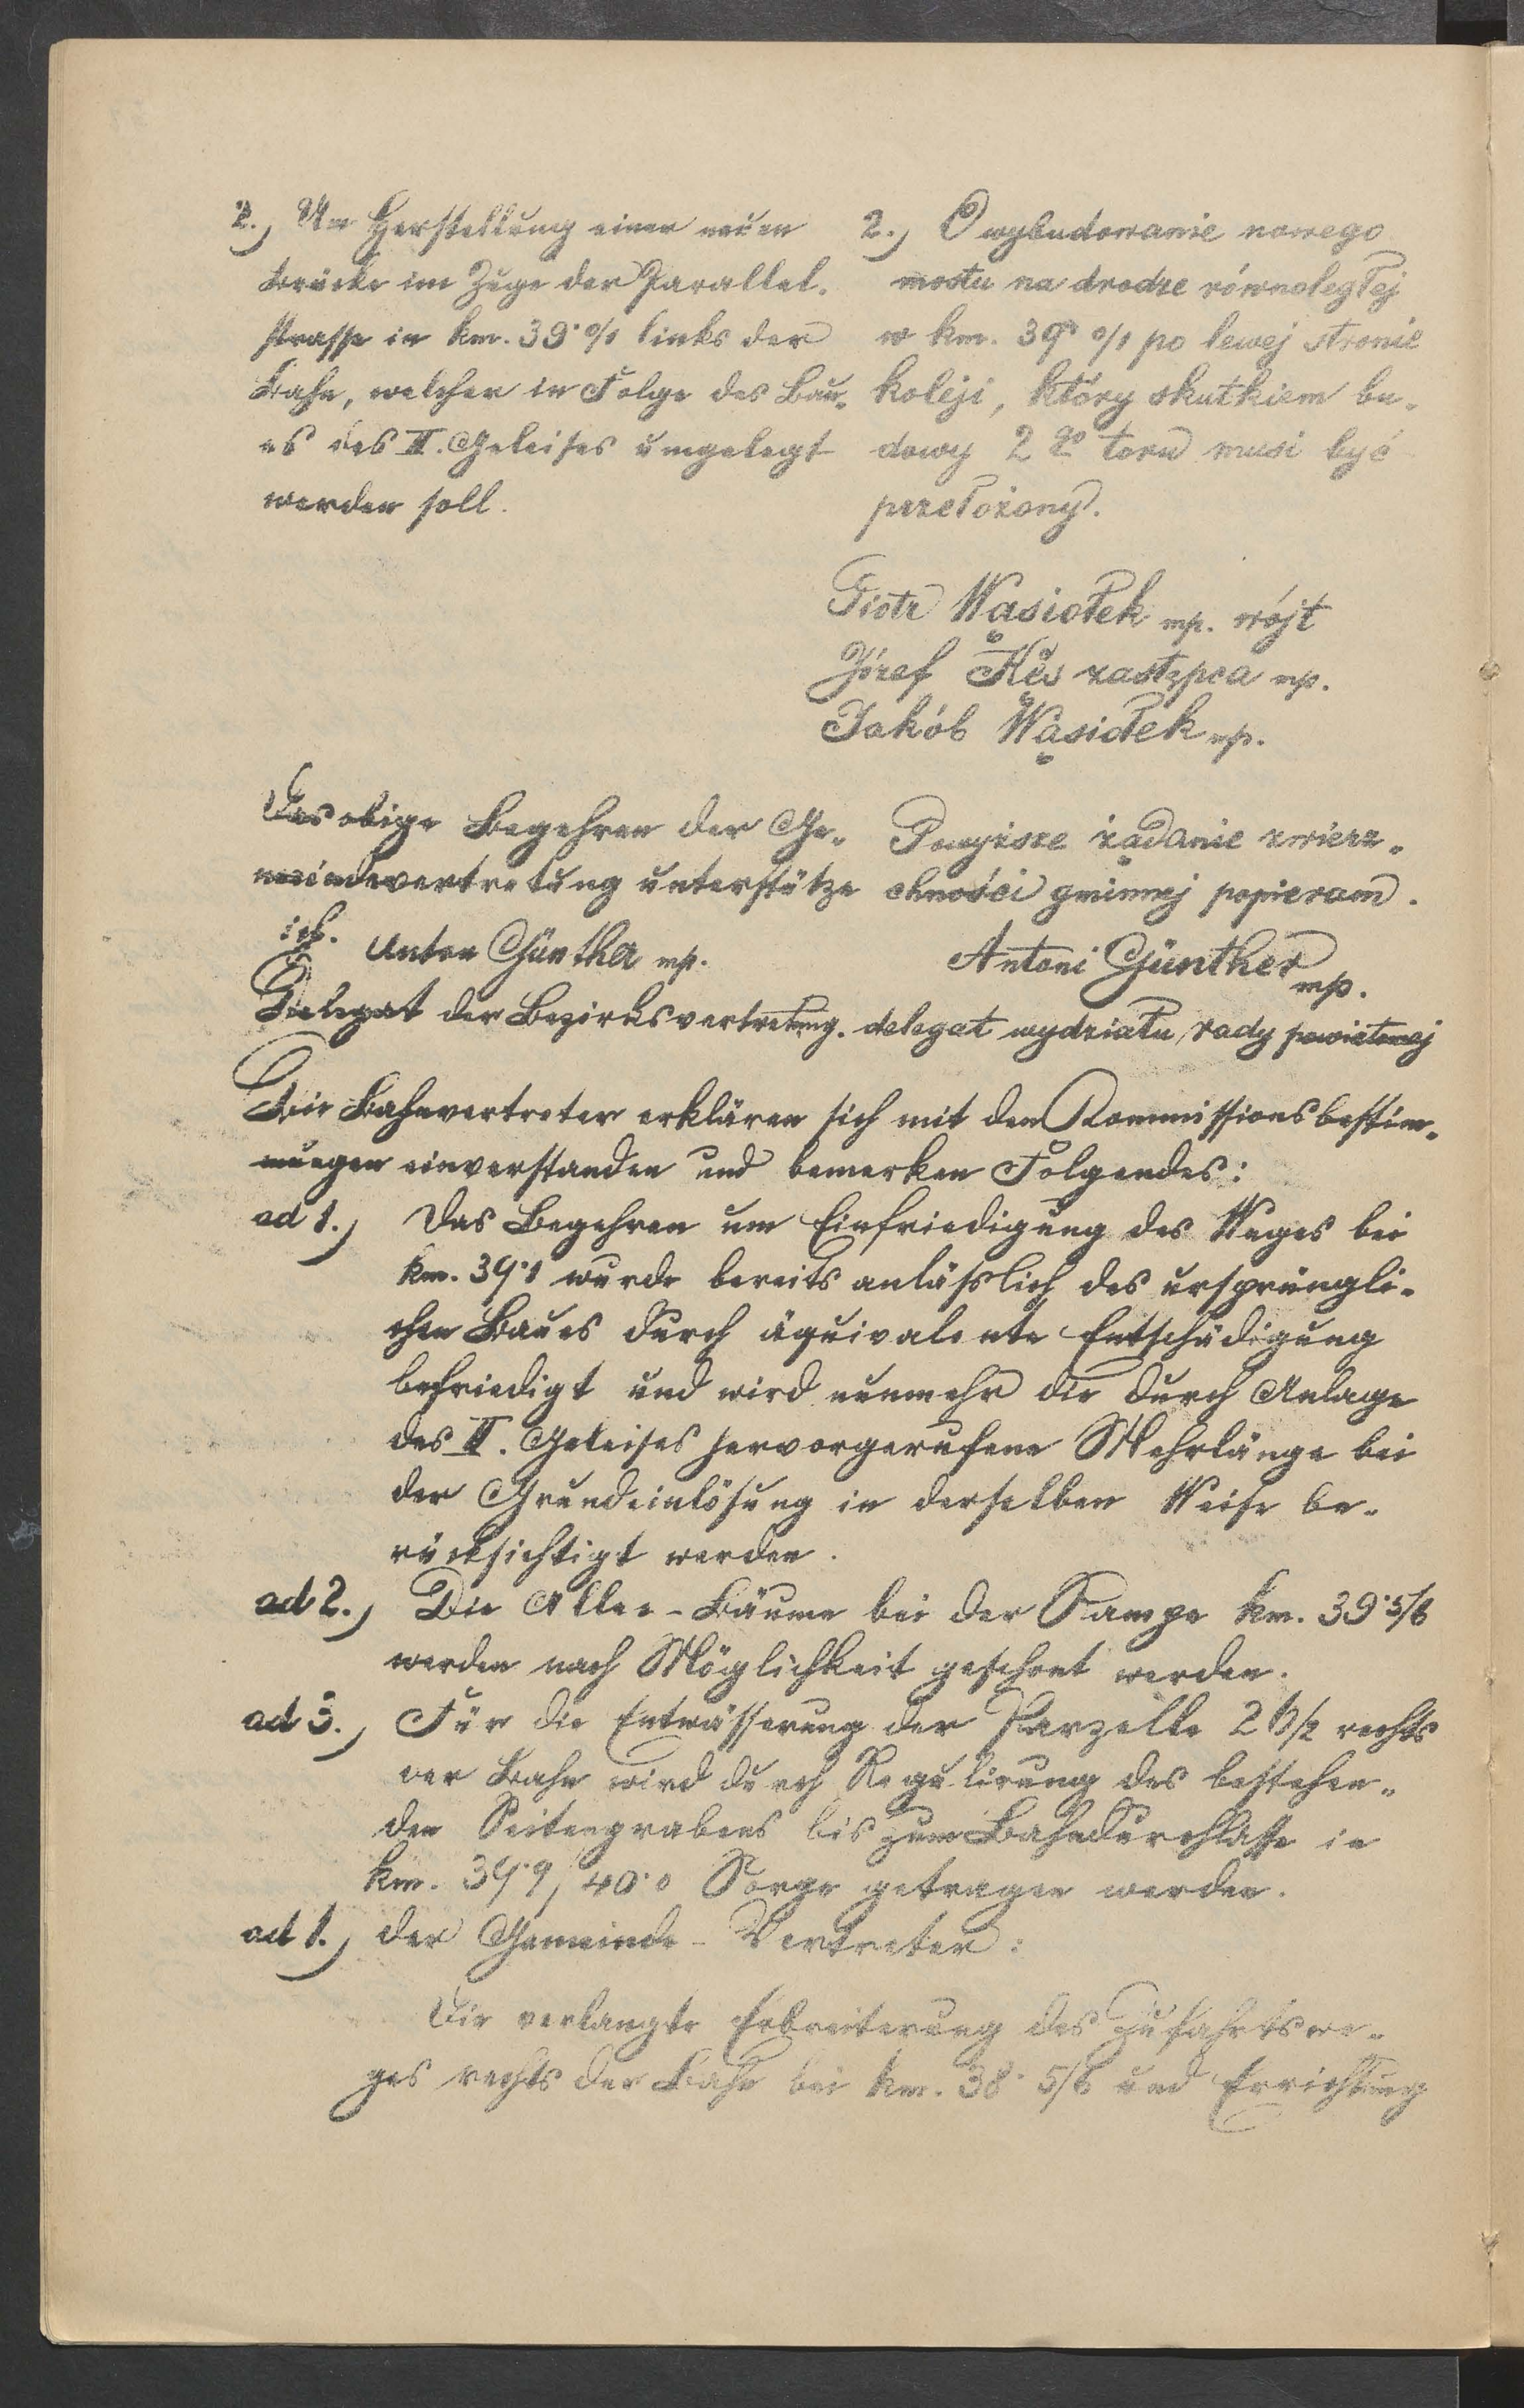 2.) Um Herstellung einer neuen
Brücke im Zuge der Parallel-
strasse in km. 39·0/1 links der
Bahn, welcher in Folge des Bau-
es des II. Geleises umgelegt
werden soll.
2.) O wybudowanie nowego
mostu na drodze równoległej
w km. 39·0/1 po lewej stronie
koleji, który skutkiem bu-
dowy 2go toru musi być
przełożony.
Piotr Wąsiołek mp. wójt
Józef Kęs zastępca mp.
Jakób Wąsiołek mp.
Das obige Begehren der Ge-
meindevertretung unterstütze
ich. Anton Günther mp.
Delegat der Bezirksvertretung.
Powyższe żądanie zwierz-
chności gminnej popieram.
Antoni Günther mp.
delegat wydziału rady powiatowej
Die Bahnvertreter erklären sich mit den Kommissionsbestim-
mungen einverstanden und bemerken Folgendes:
ad 1.) Das Begehren um Einfriedigung des Weges bei
km. 39·1 wurde bereits anläßlich des ursprüngli-
chen Baues durch äquivalente Entschädigung
befriedigt und wird nunmehr die durch Anlage
des II. Geleises hervorgerufene Mehrlänge bei
der Grundeinlösung in derselben Weise be-
rücksichtigt werden.
ad 2.) Die Allee-Bäume bei der Rampe km. 39·5/6
werden nach Möglichkeit geschont werden.
ad 3.) Für die Entwässerung der Parzelle rechts
der Bahn wird durch Regulirung des bestehen-
den Seitengrabens bis zum Bahndurchlasse in
km. 39·9/40·0 Sorge getragen werden.
ad 1.) der Gemeinde-Vertreter:
Die verlangte Erbreiterung des Zufahrtswe-
ges rechts der Bahn bei km. 38·5/6 und Errichtung